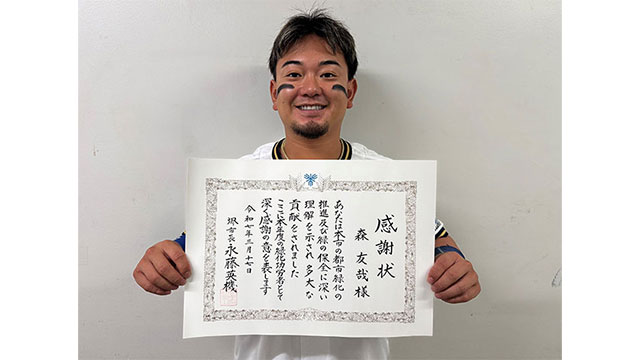 感謝状
森 友哉 様
あなたは本市の都市緑化の
推進及び緑の保全に深い
理解を示され 多大な
貢献をされました
ここに本年度の緑化功労者として
深く感謝の意を表します
令和七年三月十七日
堺市長 永藤英機